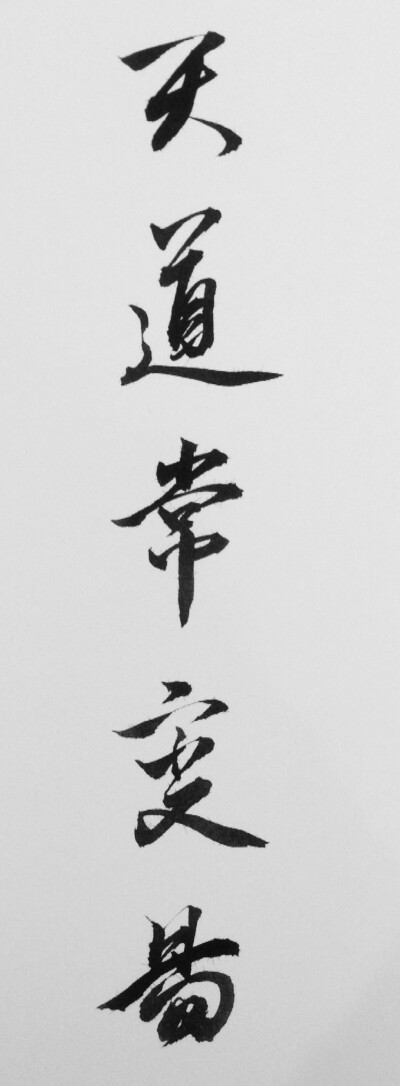 天道常变易